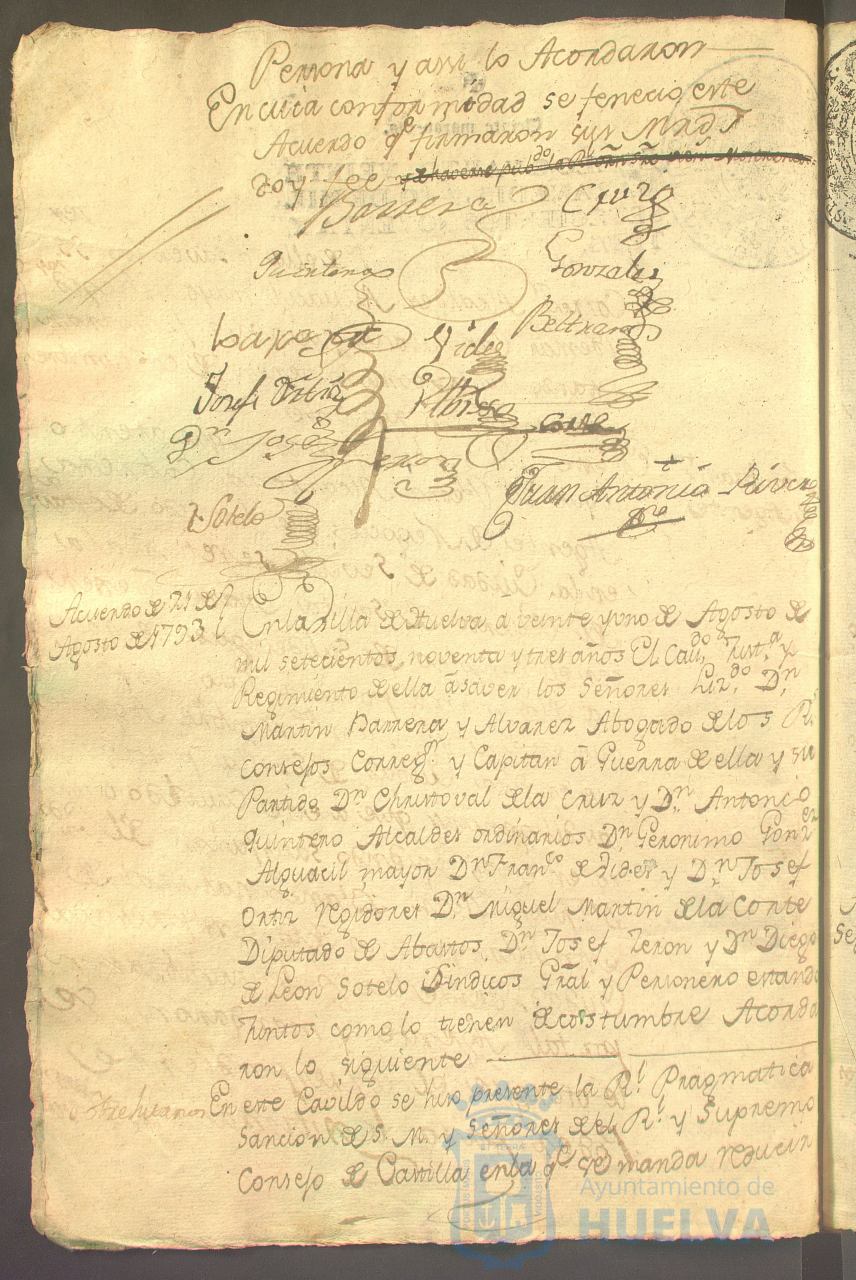 Persona y assi lo Acordaron
En cuia conformidad se fenecio este
Acuerdo qe firmaron sus Mrds
doy fee
Barrera Cruz
Quintero Gonzalez
Videz Beltran
Josef Ortiz
Dn Josef Zeron
Sotelo
Juan Antonio Rivera
Acuerdo de 21 de
Agosto de 1793
En la Villa de Huelva a veinte y uno de Agosto de
mil setecientos noventa y tres años El Cavdo Justa y
Regimiento de ella â saver los Señores Lizdo Dn
Martin Barrera y Alvarez Abogado de los Rs
Consejos Corregr y Capitan â Guerra de ella y su
Partido Dn Christoval de la Cruz y Dn Antonio
Quintero Alcaldes ordinarios Dn Geronimo Gonzez
Alguacil mayor Dn Franco de Videz y Dn Josef
Ortiz regidores Dn Miguel Martin de la Corte
Diputado de Abastos, Dn Josef Zeron y Dn Diego
de Leon Sotelo Sindicos Gral y Personero estando
Juntos como lo tienen de costumbre Acorda
ron lo siguiente
En este Cavildo se hizo presente la Rl Pragmatica
Sancion de S. M. y Señores del Rl y Supremo
Consejo de Castilla en la qe se manda reducir
Ayuntamiento de
HUELVA